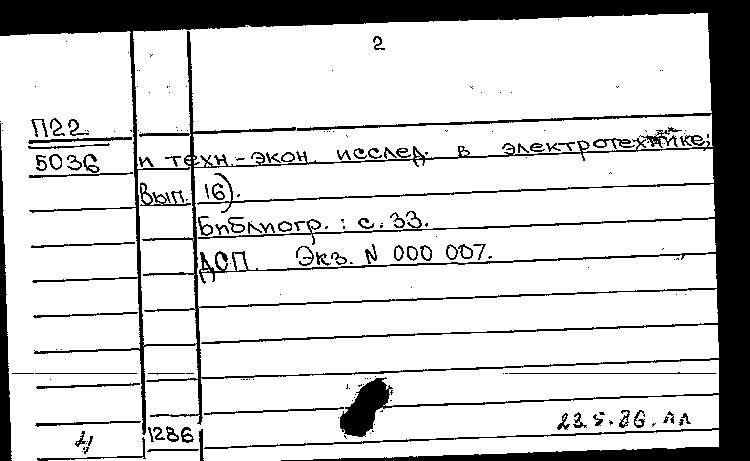 2
П22
5036 и техн.-экон. исслед. в электротехнике;
Вып. 16).
Библиогр.: с. 33.
ДСП. Экз. N 000 007.
23.5.86.
1286